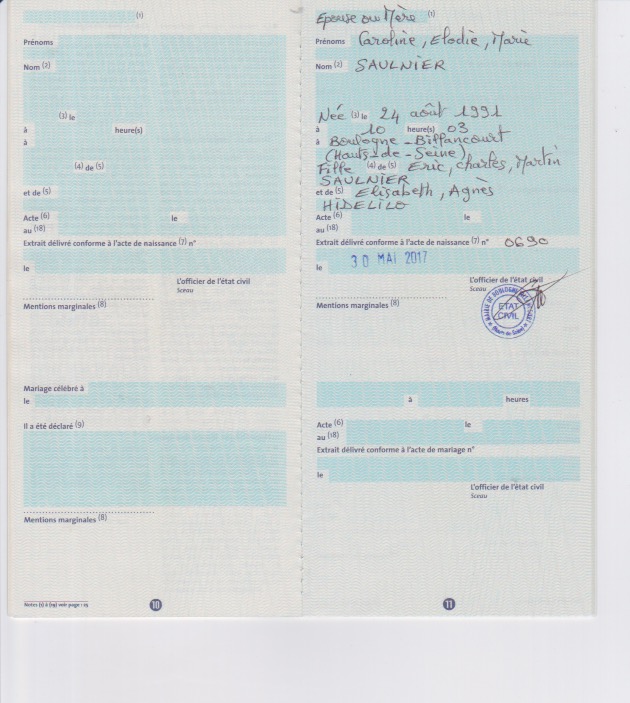 (1)
Prénoms
Nom (2)
(3) le
à heure(s)
à
(4) de (5)
et de (5)
Acte (6) le
au (18)
Extrait délivré conforme à l'acte de naissance (7) n°
le
L'officier de l'état civil
Sceau
Mentions marginales (8)
Mariage célébré à
le
Il a été déclaré (9)
Mentions marginales (8)
Notes (1) à (19) voir page : 15
10
Epouse ou Mère (1)
Prénoms Caroline, Elodie, Marie
Nom (2) SAULNIER
Née (3) le 24 août 1991
à 10 heure(s) 03
à Boulogne-Billancourt
(Hauts-de-Seine)
Fille (4) de (5) Eric, Charles, Martin
SAULNIER
et de (5) Elisabeth, Agnès
HIDELILO
Acte (6) le
au (18)
Extrait délivré conforme à l'acte de naissance (7) n° 0690
le 30 MAI 2017
L'officier de l'état civil
Sceau
ETAT
CIVIL
Mentions marginales (8)
à heures
Acte (6) le
au (18)
Extrait délivré conforme à l'acte de mariage n°
le
L'officier de l'état civil
Sceau
11